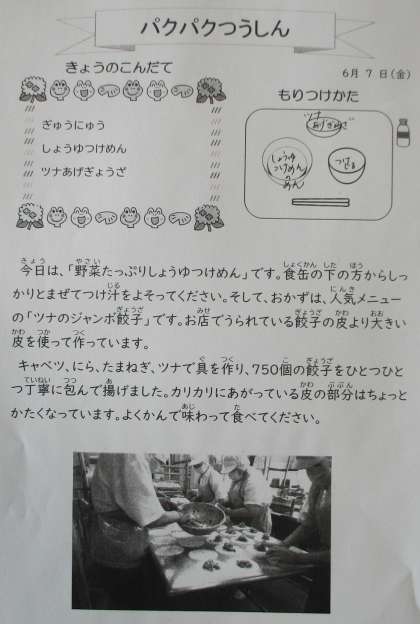 パクパクつうしん
きょうのこんだて
6月 7 日(金)
もりつけかた
ぎゅうにゅう
しょうゆつけめん
ツナあげぎょうざ
ツナ
あげぎょうざ
しょうゆ
つけめん
の
めん
つけ
じる
今日は、「野菜たっぷりしょうゆつけめん」です。食缶の下の方からしっ
かりとまぜてつけ汁をよそってください。そして、おかずは、人気メニュー
の「ツナのジャンボ餃子」です。お店でうられている餃子の皮より大きい
皮を使って作っています。
キャベツ、にら、たまねぎ、ツナで具を作り、750個の餃子をひとつひと
つ丁寧に包んで揚げました。カリカリにあがっている皮の部分はちょっと
かたくなっています。よくかんで味わって食べてください。